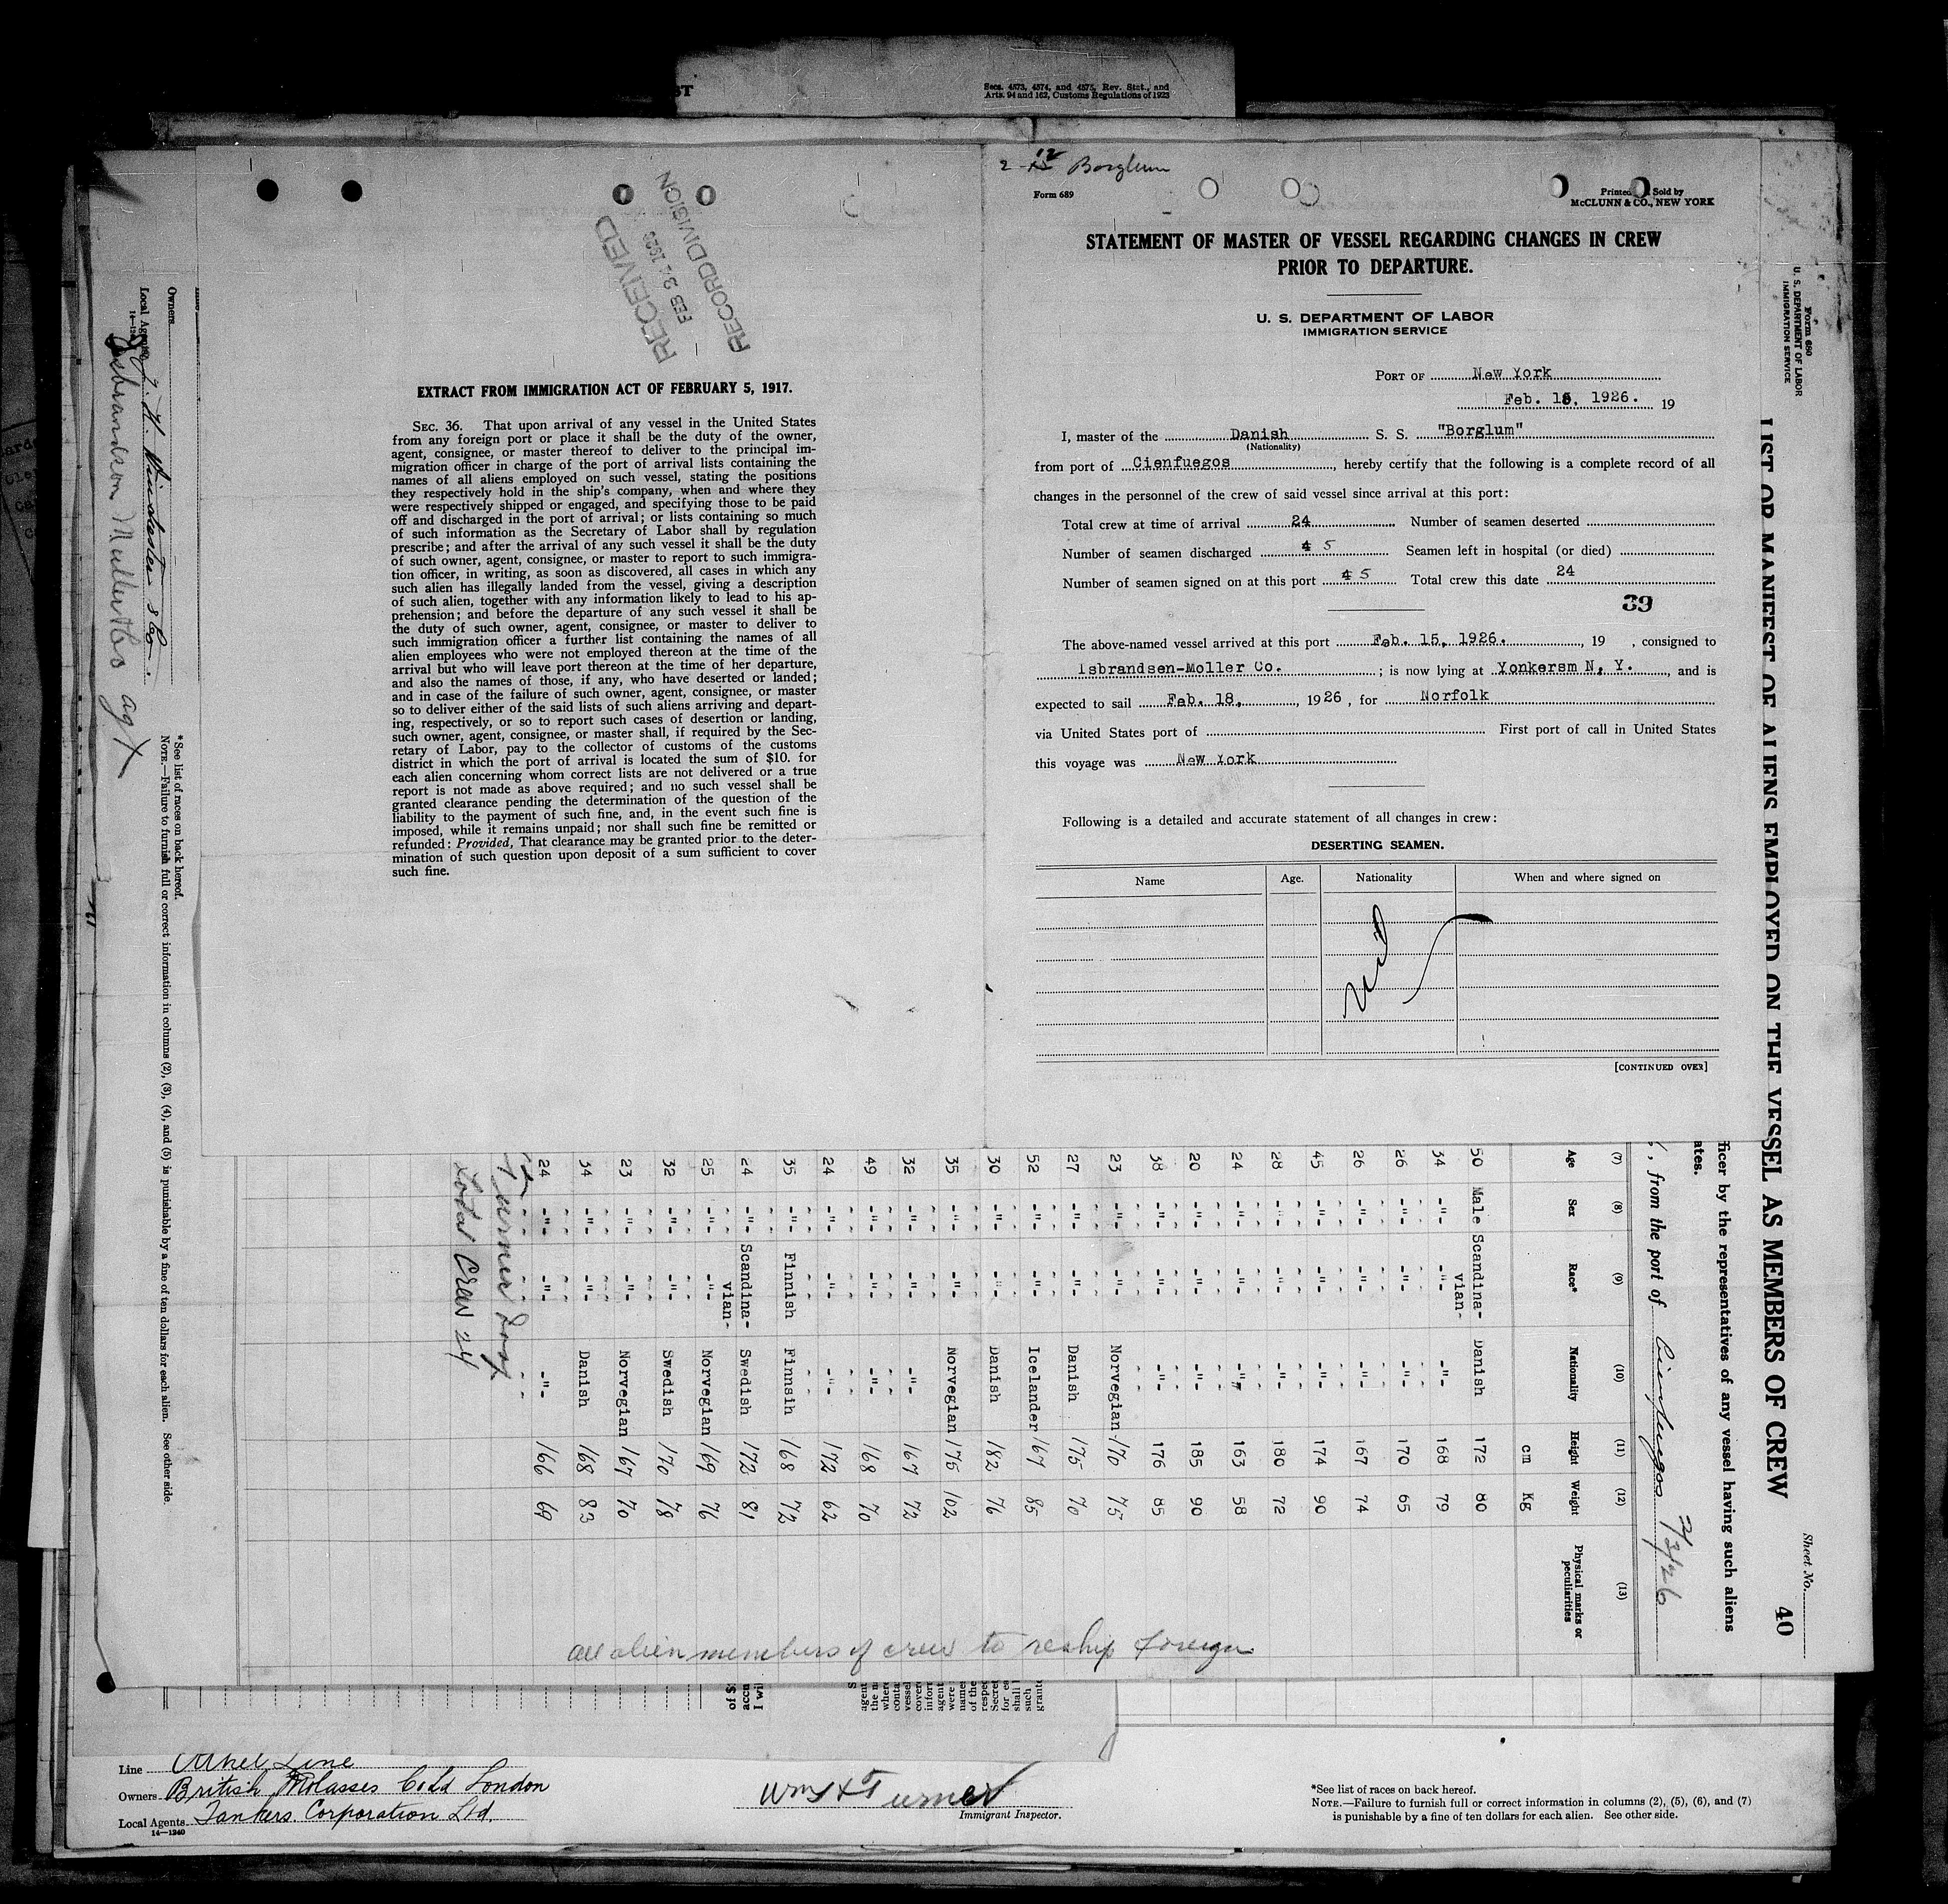 ST
Secs. 4573, 4574, and 4575, Rev. Stat., and
Arts. 94 and 162, Customs Regulations of 1923
RECEIVED
FEB 24 1926
RECORD DIVISION
EXTRACT FROM IMMIGRATION ACT OF FEBRUARY 5, 1917.
SEC. 36. That upon arrival of any vessel in the United States
from any foreign port or place it shall be the duty of the owner,
agent, consignee, or master thereof to deliver to the principal im-
migration officer in charge of the port of arrival lists containing the
names of all aliens employed on such vessel, stating the positions
they respectively hold in the ship's company, when and where they
were respectively shipped or engaged, and specifying those to be paid
off and discharged in the port of arrival; or lists containing so much
of such information as the Secretary of Labor shall by regulation
prescribe; and after the arrival of any such vessel it shall be the duty
of such owner, agent, consignee, or master to report to such immigra-
tion officer, in writing, as soon as discovered, all cases in which any
such alien has illegally landed from the vessel, giving a description
of such alien, together with any information likely to lead to his ap-
prehension; and before the departure of any such vessel it shall be
the duty of such owner, agent, consignee, or master to deliver to
such immigration officer a further list containing the names of all
alien employees who were not employed thereon at the time of the
arrival but who will leave port thereon at the time of her departure,
and also the names of those, if any, who have deserted or landed;
and in case of the failure of such owner, agent, consignee, or master
so to deliver either of the said lists of such aliens arriving and depart-
ing, respectively, or so to report such cases of desertion or landing,
such owner, agent, consignee, or master shall, if required by the Sec-
retary of Labor, pay to the collector of customs of the customs
district in which the port of arrival is located the sum of $10. for
each alien concerning whom correct lists are not delivered or a true
report is not made as above required; and no such vessel shall be
granted clearance pending the determination of the question of the
liability to the payment of such fine, and, in the event such fine is
imposed, while it remains unpaid; nor shall such fine be remitted or
refunded: Provided, That clearance may be granted prior to the deter-
mination of such question upon deposit of a sum sufficient to cover
such fine.
2- 12 Borglum
Form 689
Printed Sold by
McCLUNN & CO., NEW YORK
STATEMENT OF MASTER OF VESSEL REGARDING CHANGES IN CREW
PRIOR TO DEPARTURE.
U. S. DEPARTMENT OF LABOR
IMMIGRATION SERVICE
PORT OF New York
Feb. 18, 1926. 19
I, master of the Danish S. S. "Borglum"
(Nationality)
from port of Cienfuegos, hereby certify that the following is a complete record of all
changes in the personnel of the crew of said vessel since arrival at this port:
Total crew at time of arrival 24 Number of seamen deserted
Number of seamen discharged 4 5 Seamen left in hospital (or died)
Number of seamen signed on at this port 4 5 Total crew this date 24
39
The above-named vessel arrived at this port Feb. 15, 1926. , 19 , consigned to
Isbrandsen-Moller Co. ; is now lying at Yonkersm N, Y. , and is
expected to sail Feb. 18, , 1926 , for Norfolk
via United States port of First port of call in United States
this voyage was New York
Following is a detailed and accurate statement of all changes in crew:
DESERTING SEAMEN.
Name Age. Nationality When and where signed on
[CONTINUED OVER]
Form 680
U. S. DEPARTMENT OF LABOR
IMMIGRATION SERVICE
LIST OR MANIFEST OF ALIENS EMPLOYED ON THE VESSEL AS MEMBERS OF CREW
Sheet No.
40
ficer by the representatives of any vessel having such aliens
ates.
, from the port of Cienfuegos 2/3/26
(7) (8) (9) (10) (11) (12) (13)
Age Sex Race* Nationality Height Weight Physical marks or peculiarities
cm Kg
50 Male Scandina-vian- Danish 172 80
34 -"- -"- -"- 168 79
26 -"- -"- -"- 170 65
26 -"- -"- -"- 167 74
45 -"- -"- -"- 174 90
28 -"- -"- -"- 180 72
24 -"- -"- -"- 163 58
20 -"- -"- -"- 185 90
38 -"- -"- -"- 176 85
23 -"- -"- Norwegian 170 75
27 -"- -"- Danish 175 70
52 -"- -"- Icelander 167 85
30 -"- -"- Danish 182 76
35 -"- -"- Norwegian 175 102
32 -"- -"- -"- 167 72
49 -"- -"- -"- 168 70
24 -"- -"- -"- 172 62
35 -"- Finnish Finnsih 168 72
24 -"- Scandina-vian- Swedish 172 81
25 -"- -"- Norwegian 169 76
32 -"- -"- Swedish 170 78
23 -"- -"- Norwegian 167 70
34 -"- -"- Danish 168 83
24 -"- -"- -"- 166 69
Turner
Total Crew 24
all alien members of crew to reship foreign
*See list of races on back hereof.
NOTE.—Failure to furnish full or correct information in columns (2), (3), (4), and (5) is punishable by a fine of ten dollars for each alien. See other side.
Owners
Local Agents
14—1240
Winchester & Co.
agt
Line
Owners British Molasses Co Ld London
Local Agents Tankers Corporation Ltd.
14—1240
Wm H Turner
Immigrant Inspector.
*See list of races on back hereof.
NOTE.—Failure to furnish full or correct information in columns (2), (5), (6), and (7)
is punishable by a fine of ten dollars for each alien. See other side.